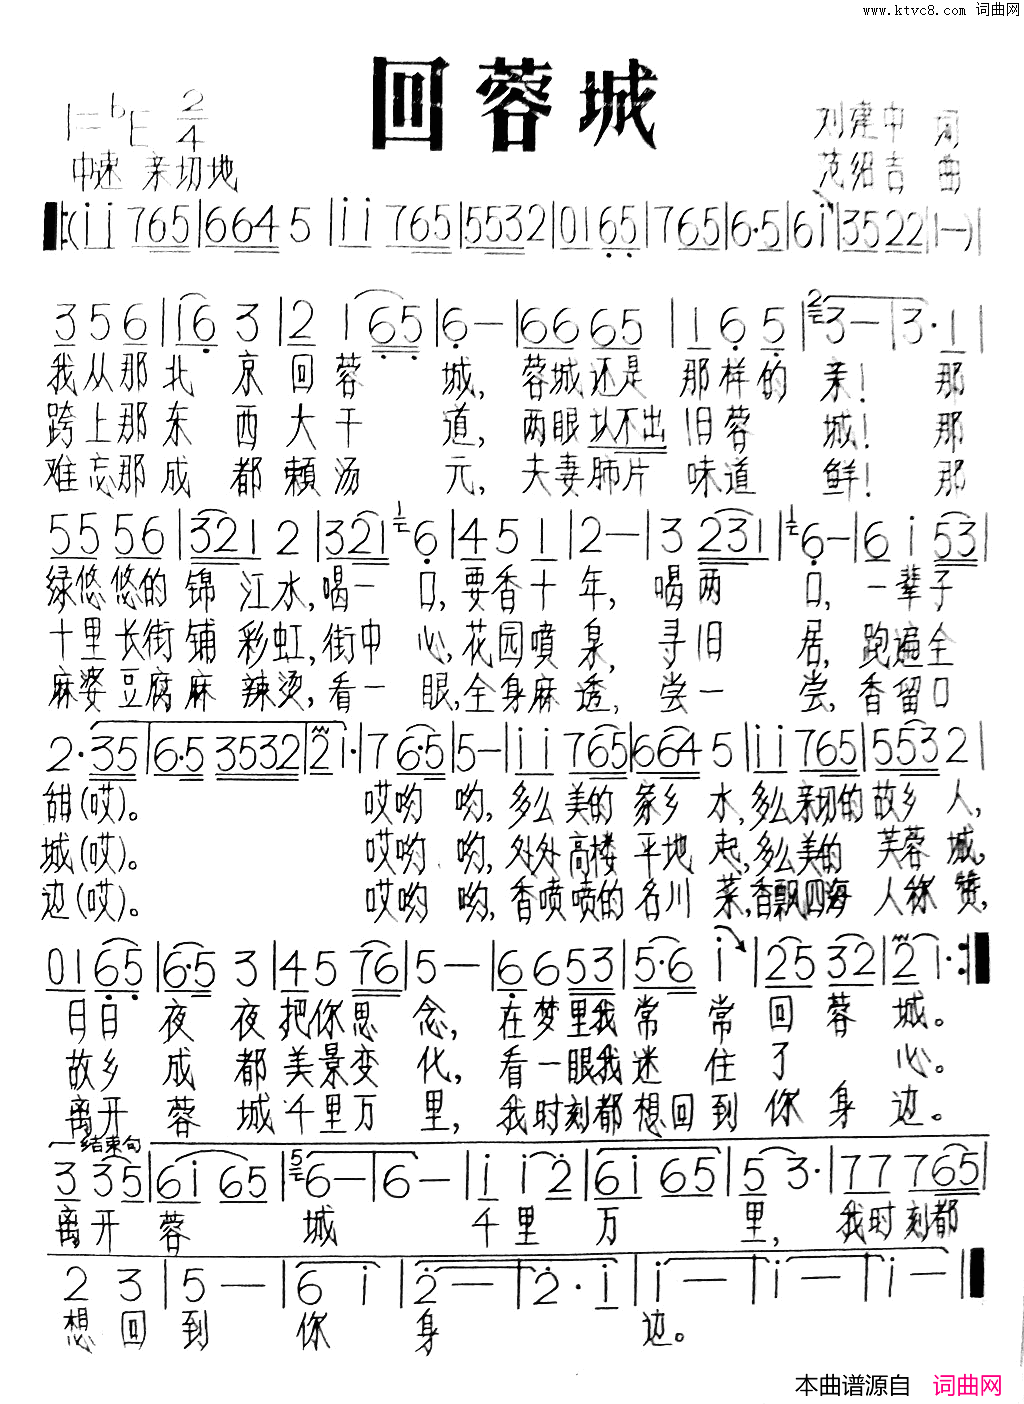 www.ktvc8.com 词曲网
回蓉城
1=♭E 2/4
刘建中 词
中速 亲切地
范绍吉 曲
‖:(i i 765|664 5|i i 765|5532|0165|765|6·5|6i|3522|1—)|
3 5 6|16 3|2 1 65|6—|66 65|1 6 5|3—|3·1|
我从那北 京回蓉 城,蓉城还是 那样的 亲! 那
跨上那东 西大干 道,两眼认不出 旧蓉 城! 那
难忘那成 都赖汤 元,夫妻肺片 味道 鲜! 那
55 56|321 2|321 6|4 5 1|2—|3 231|6—|6 i 53|
绿悠悠的 锦 江水,喝一 口,要香十 年, 喝两 口, 一辈子
十里长街 铺 彩虹,街中 心,花园喷 泉, 寻旧 居, 跑遍全
麻婆豆腐 麻 辣烫,看一 眼,全身麻 透, 尝一 尝,香留口
2·35|6·5 3532|2i·|7 6·5|5—|i i 765|664 5|i i 765|553 2|
甜(哎)。 哎哟 哟,多么美的 家乡 水,多么亲切的 故乡 人,
城(哎)。 哎哟 哟,处处高楼 平地 起,多么美的 芙蓉 城,
边(哎)。 哎哟 哟,香喷喷的 名川 菜,香飘四海 人称 赞,
01 65|6·5 3|4 5 76|5—|6 6 53|5·6 i|25 32|2i·:‖
日日 夜 夜把你思 念, 在梦里我 常 常 回 蓉 城。
故乡 成 都美景变 化, 看一眼我 迷 住 了 心。
离开 蓉 城千里万 里, 我时刻都 想回到 你 身 边。
结束句
3 35|6i 65|6—|6—|i i2|6i 65|5 3·|77 765|
离开 蓉 城 千里 万 里, 我时刻都
2 3|5—|6 i|2—|2·i|i—|i—|i—‖
想回 到 你 身 边。
本曲谱源自 词曲网